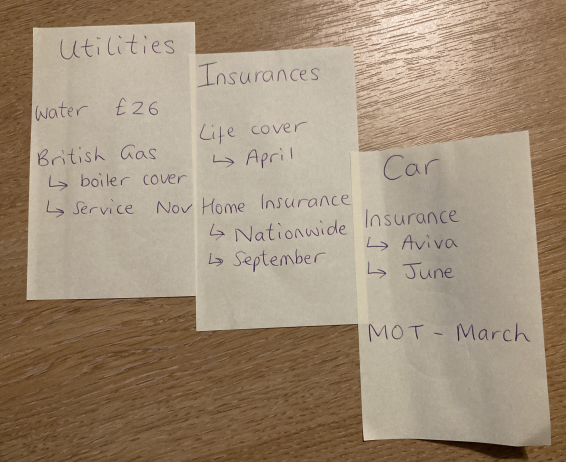 Utilities
Water £26
British Gas
↳ boiler cover
↳ Service Nov
Insurances
Life cover
↳ April
Home Insurance
↳ Nationwide
↳ September
Car
Insurance
↳ Aviva
↳ June
MOT - March